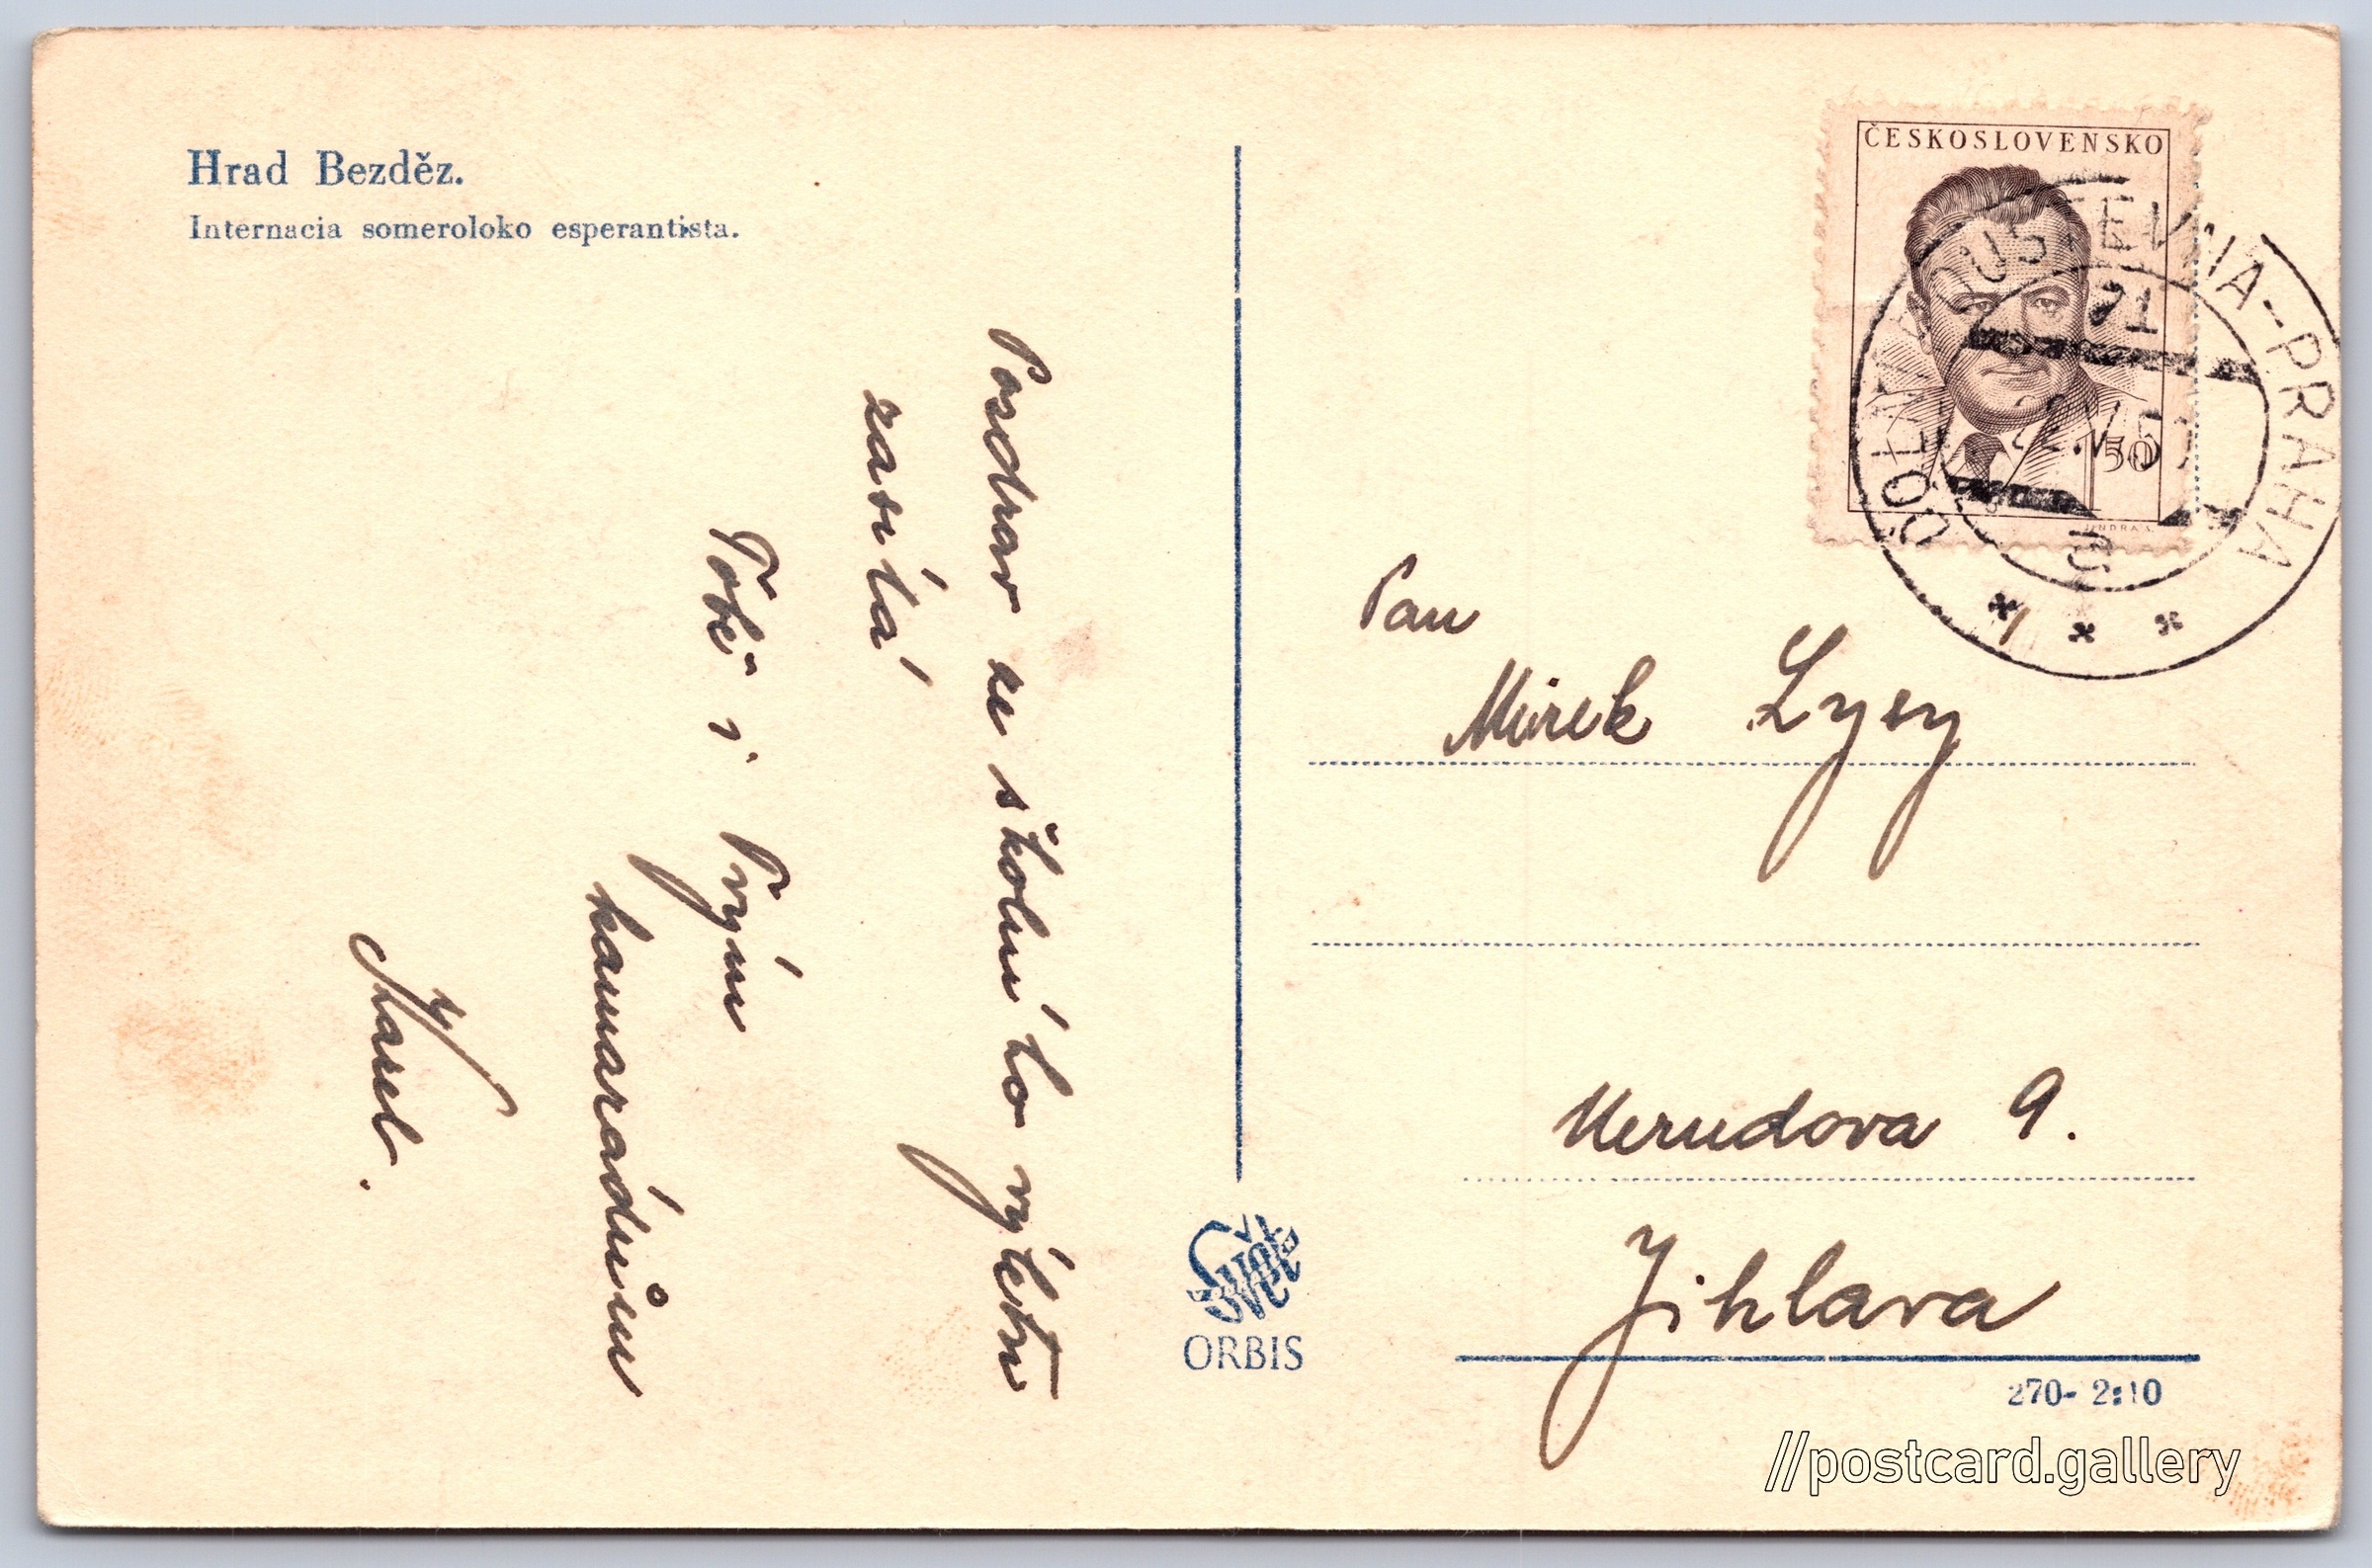 Hrad Bezděz.
Internacia someroloko esperantista.
Pozdrav ze školního výletu
zasílá
Tobě i Tvým
kamarádům
Karel.
ČESKOSLOVENSKO
1 50
JINDRA
71
-PRAHA
Pan
Mirek Lysy
Nerudova 9.
Jihlava
Svět
ORBIS
270- 2:10
//postcard.gallery